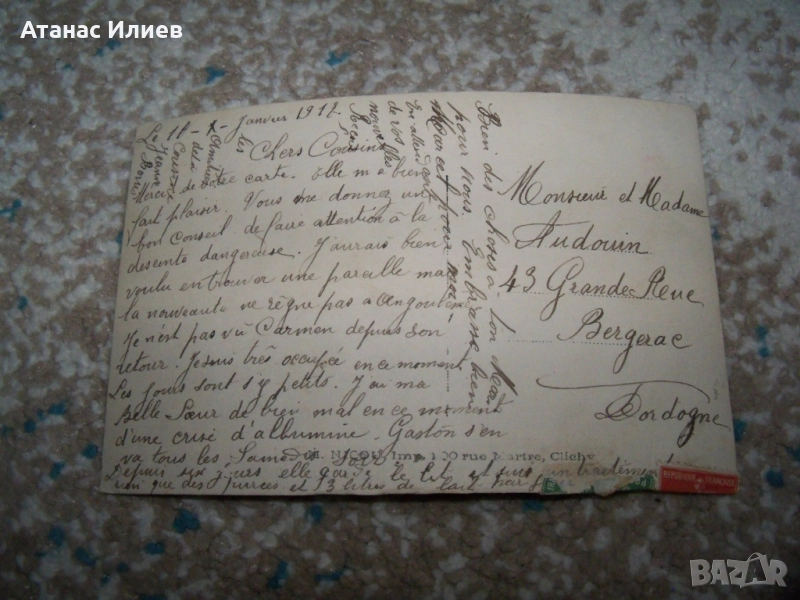 Атанас Илиев
Le 11-X- Janvier 1912
Chers Cousins
Merci de votre carte. Elle m'a bien
fait plaisir. Vous me donnez un
bon Conseil de faire attention à la
descente dangereuse. J'aurais bien
voulu en trouver une pareille mais
la nouveauté ne règne pas a Angoulême
Je n'est pas vu Carmen depuis son
retour. Je suis très occupée en ce moment.
Les jours sont s'y petits. J'ai ma
Belle Sœur de bien mal en ce moment
d'une crise d'albumine. Gaston s'en
va tous les Samedi
Depuis six jours elle garde le lit et suit un traitement
rien que des purées et 3 litres de lait par jour
En attendant
de vos
nouvelles
Recevez
les
Amitiés
de la
Cousine
Jeanne
Bien des choses a ton
pour nous. Embrasse bien
Marcel pour moi
Monsieur et Madame
Audouin
43 Grande Rue
Bergerac
Dordogne
NICOL, Imp. 100 rue Martre, Clichy
REPUBLIQUE FRANÇAISE
BAZAR